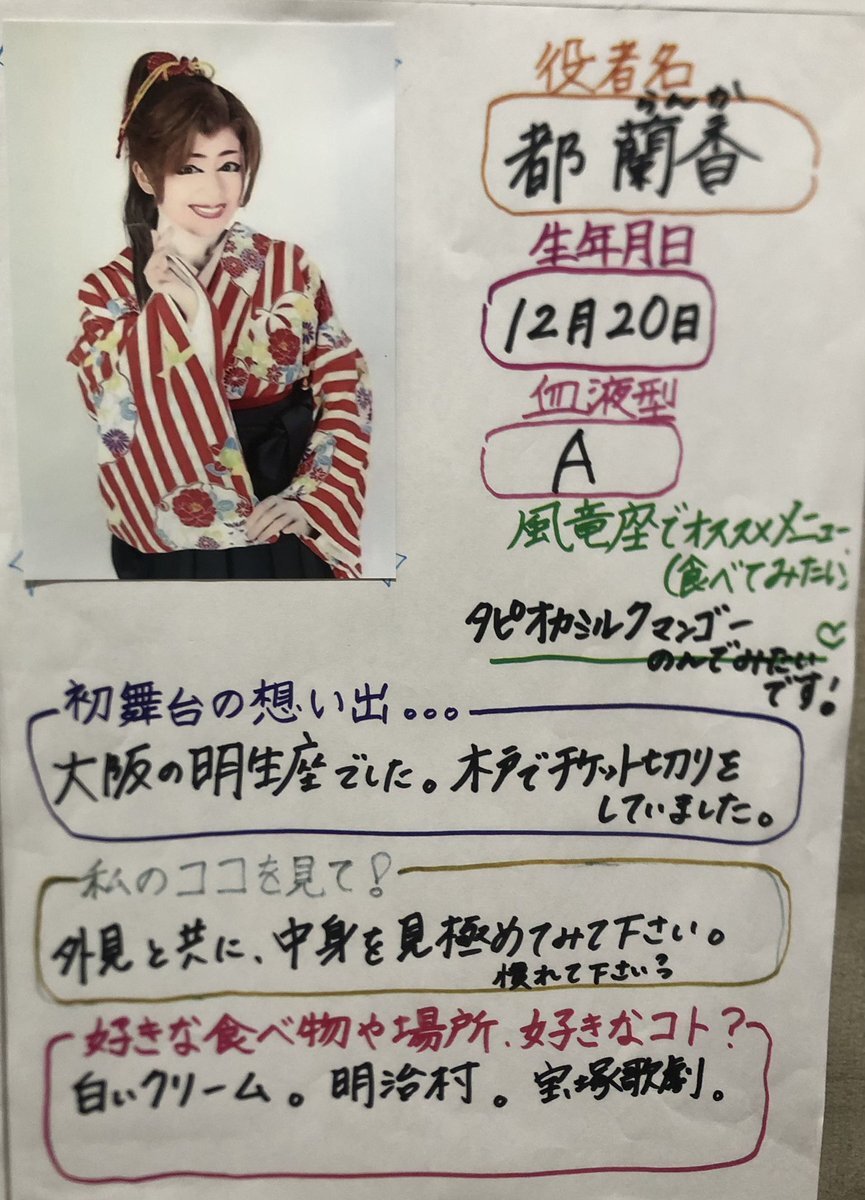 役者名
らんか
都 蘭香
生年月日
12月20日
血液型
A
風竜座でオススメメニュー
(食べてみたい)
タピオカミルクマンゴー
のんでみたい
です!
初舞台の想い出。。。
大阪の明生座でした。木戸でチケット切りを
していました。
私のココを見て!
外見と共に、中身を見極めてみて下さい。
慣れて下さい?
好きな食べ物や場所、好きなコト?
白いクリーム。明治村。宝塚歌劇。